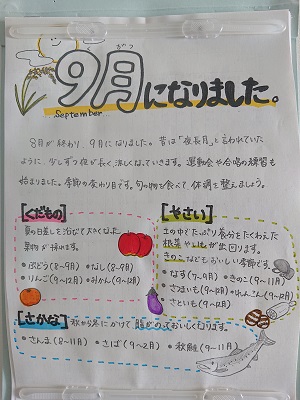 がつ
9月になりました。
September
8月が終わり、9月になりました。昔は「夜長月」と言われていた
ように、少しずつ夜が長く涼しくなっていきます。運動会や合唱の練習も
始まりました。季節の変わり目です。旬の物を食べて体調を整えましょう。
[くだもの]
夏の日差しを浴びて大きくなった
果物が採れます。
•ぶどう(8〜9月) •なし(8〜9月)
•りんご(9〜12月) •みかん(9〜2月)
[やさい]
土の中でたっぷり養分をたくわえた
根菜やいもが出回ります。
きのこなどもおいしい季節です。
•なす(7〜9月) •きのこ(9〜11月)
•さつまいも(9〜2月) •れんこん(9〜2月)
•さといも(9〜2月)
[さかな] 秋から冬にかけて脂がのっておいしくなります。
•さんま(8〜11月) •さば(9〜2月) •秋鮭(9〜11月)